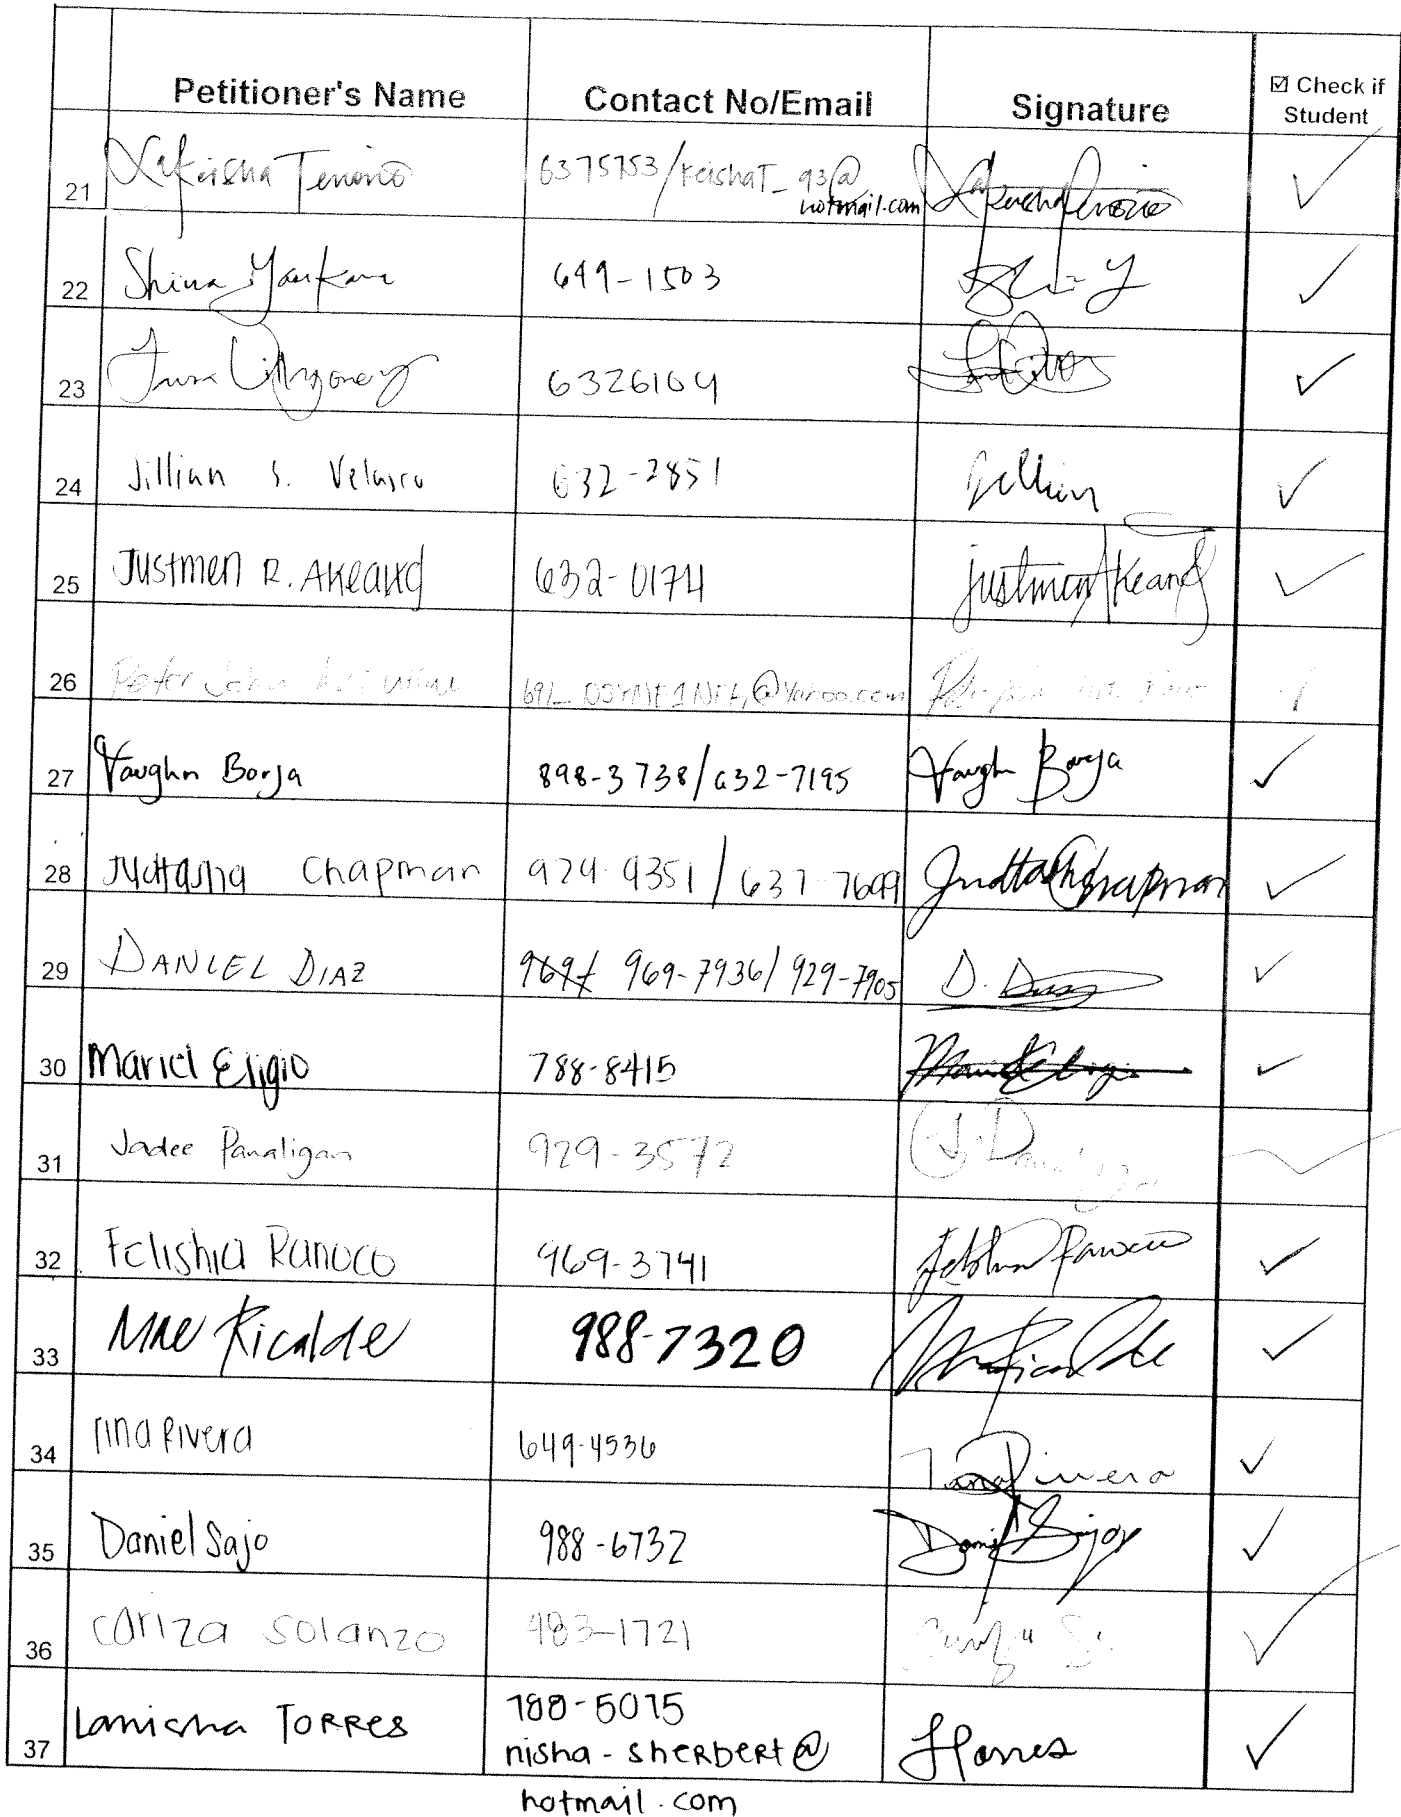 Petitioner's Name Contact No/Email Signature ☑ Check if Student
21 Lakeisha Tenorio 6375753/KeishaT_93@hotmail.com Lakeisha Tenorio ✓
22 Shina 649-1503 ✓
23 6326104 ✓
24 Jillian S. Velasco 632-2851 Jillian ✓
25 Justmen R. Akeang 632-0174 Justmen Akeang ✓
26 Peter John @Yahoo.com
27 Vaughn Borja 898-3738/632-7195 Vaughn Borja ✓
28 Chapman 929-9351/637-7699 Chapman ✓
29 DANIEL DIAZ 969-7936/929-7905 D. Diaz ✓
30 Mariel Eligio 788-8415 Mariel Eligio ✓
31 Jadee Panaligan 929-3572 ✓
32 Felishia Ranoco 969-3741 Felishia Ranoco ✓
33 Mae Ricalde 988-7320 Mae Ricalde ✓
34 Tina Rivera 649-4536 Tina Rivera ✓
35 Daniel Sajo 988-6732 Daniel ✓
36 Cariza Solanzo 483-1721 ✓
37 Lanisha TORRES 788-5075 LTorres ✓
nisha-sherbert@
hotmail.com